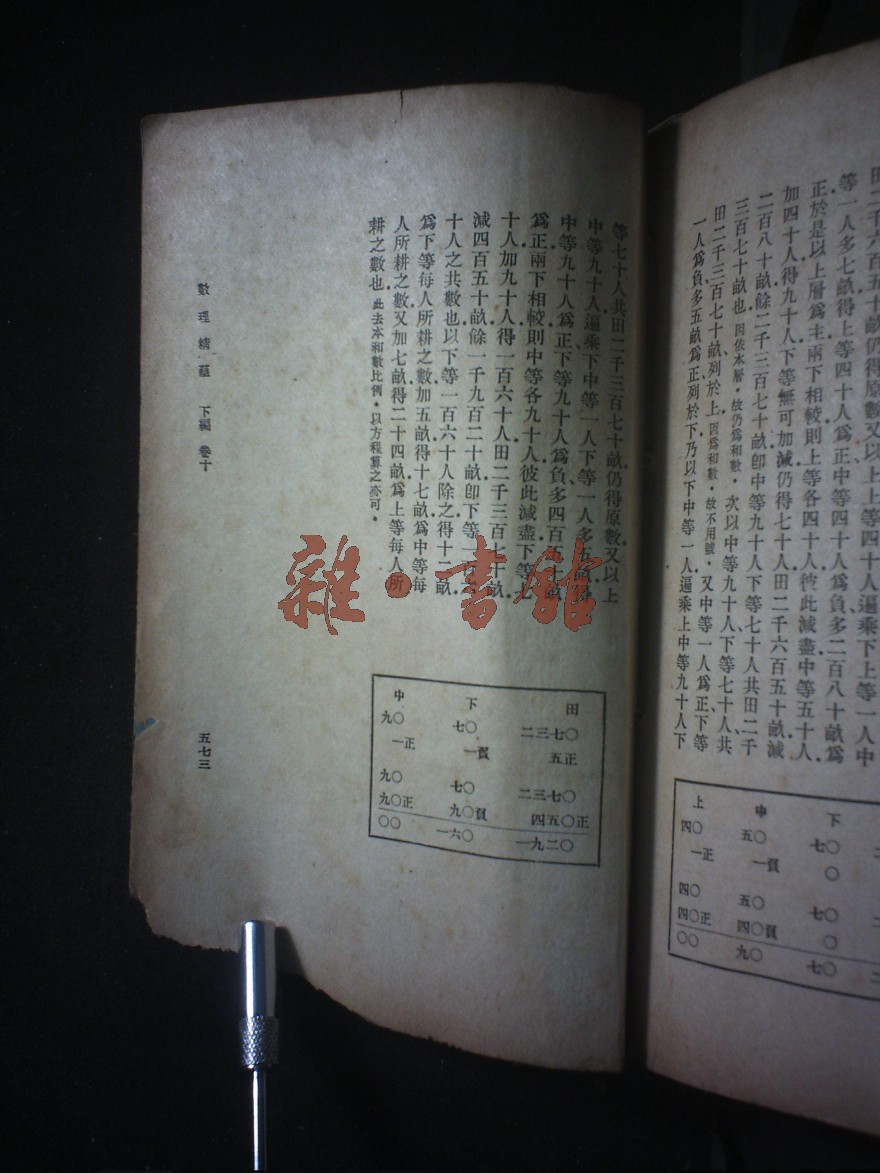 田二千六百五十畝仍得原數又以上上等四十人遍乘下上等一人中
等一人多七畝得上等四十人爲正中等四十人爲負多二百八十畝爲
正於是以上層爲主兩下相較則上等各四十人彼此減盡中等五十人
加四十人得九十人下等無可加減仍得七十人田二千六百五十畝減
二百八十畝餘二千三百七十畝卽中等九十人下等七十人共田二千
三百七十畝也因依本層故仍爲和數次以中等九十人下等七十人共
田二千三百七十畝列於上因爲和數故不用號又中等一人爲正下等
一人爲負多五畝爲正列於下乃以下中等一人遍乘上中等九十人下
上 中 下
四〇 五〇 七〇
一正 一負 〇
四〇 五〇 七〇
四〇正 四〇負 〇
〇〇 九〇 七〇
等七十人共田二千三百七十畝仍得原數又以上
中等九十人遍乘下中等一人下等一人多五畝得
中等九十人爲正下等九十人爲負多四百五十畝
爲正兩下相較則中等各九十人彼此減盡下等七
十人加九十人得一百六十人田二千三百七十畝
減四百五十畝餘一千九百二十畝卽下等一百六
十人之共數也以下等一百六十人除之得十二畝
爲下等每人所耕之數加五畝得十七畝爲中等每
人所耕之數又加七畝得二十四畝爲上等每人所
耕之數也此去本和數比例以方程算之亦可
中 下 田
九〇 七〇 二三七〇
一正 一負 五正
九〇 七〇 二三七〇
九〇正 九〇負 四五〇正
〇〇 一六〇 一九二〇
數理精蘊 下編 卷十
五七三
雜·書館